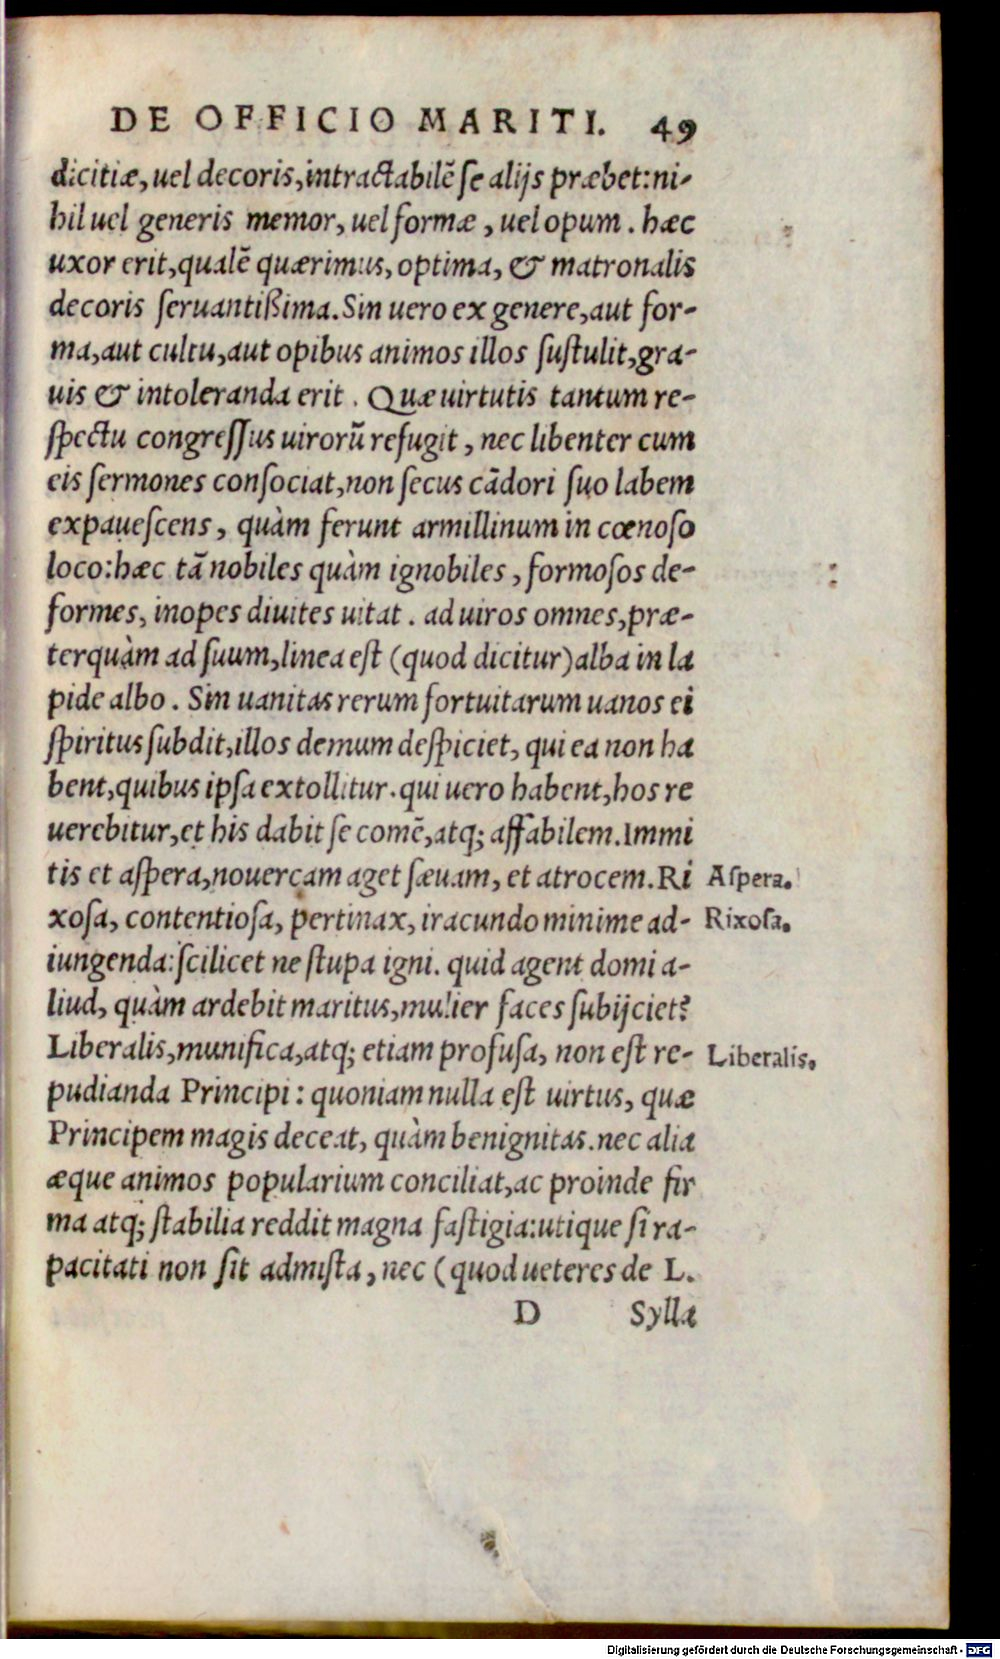 DE OFFICIO MARITI. 49
dicitiæ, uel decoris, intractabilẽ ſe alijs præbet: ni-
hil uel generis memor, uel formæ, uel opum. hæc
uxor erit, qualẽ quærimus, optima, & matronalis
decoris ſeruantißima. Sin uero ex genere, aut for-
ma, aut cultu, aut opibus animos illos ſuſtulit, gra-
uis & intoleranda erit. Quæ uirtutis tantum re-
ſpectu congreſſus uirorũ refugit, nec libenter cum
eis ſermones conſociat, non ſecus cãdori ſuo labem
expaueſcens, quàm ferunt armillinum in cœnoſo
loco: hæc tã nobiles quàm ignobiles, formoſos de-
formes, inopes diuites uitat. ad uiros omnes, præ-
terquàm ad ſuum, linea eſt (quod dicitur) alba in la
pide albo. Sin uanitas rerum fortuitarum uanos ei
ſpiritus ſubdit, illos demum deſpiciet, qui ea non ha
bent, quibus ipſa extollitur. qui uero habent, hos re
uerebitur, et his dabit ſe comẽ, atq; affabilem. Immi
tis et aſpera, nouercam aget ſæuam, et atrocem. Ri Aſpera.
xoſa, contentioſa, pertinax, iracundo minime ad- Rixoſa.
iungenda: ſcilicet ne ſtupa igni. quid agent domi a-
liud, quàm ardebit maritus, mulier faces ſubijciet?
Liberalis, munifica, atq; etiam profuſa, non eſt re- Liberalis.
pudianda Principi: quoniam nulla eſt uirtus, quæ
Principem magis deceat, quàm benignitas. nec alia
æque animos popularium conciliat, ac proinde fir
ma atq; ſtabilia reddit magna faſtigia: utique ſi ra-
pacitati non ſit admiſta, nec (quod ueteres de L.
D Sylla
Digitalisierung gefördert durch die Deutsche Forschungsgemeinschaft - DFG